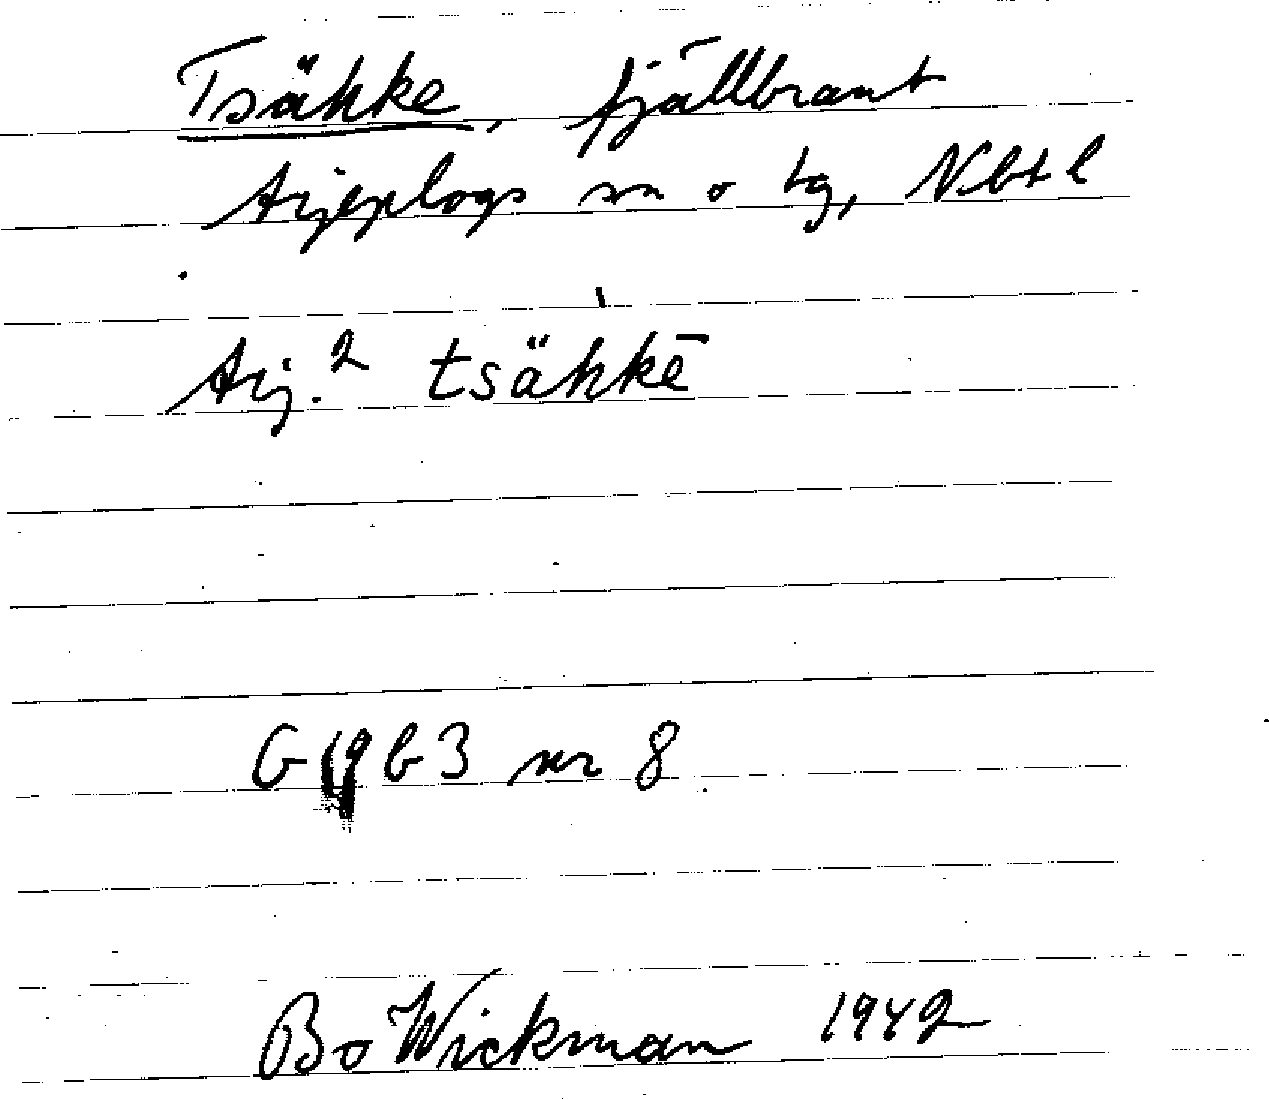 Tsähke, fjällbrant
Arjeplogs sn o tg, Nbtl
Arj.² tsäh̀kē
b3 nr 8
Bo Wickman 1942